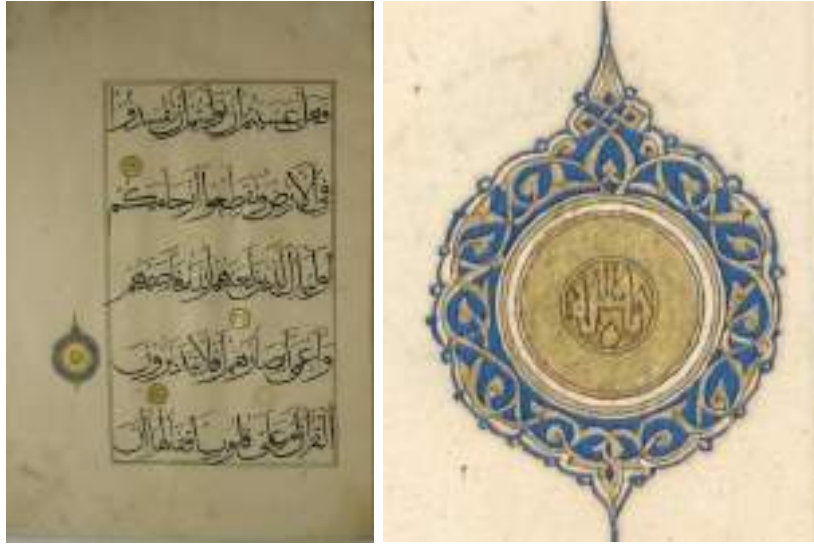 فهل عسيتم ان توليتم ان تفسدوا
في الارض وتقطعوا ارحامكم
اولئك الذين لعنهم الله فاصمهم
واعمى ابصارهم افلا يتدبرون
القران ام على قلوب اقفالها ان